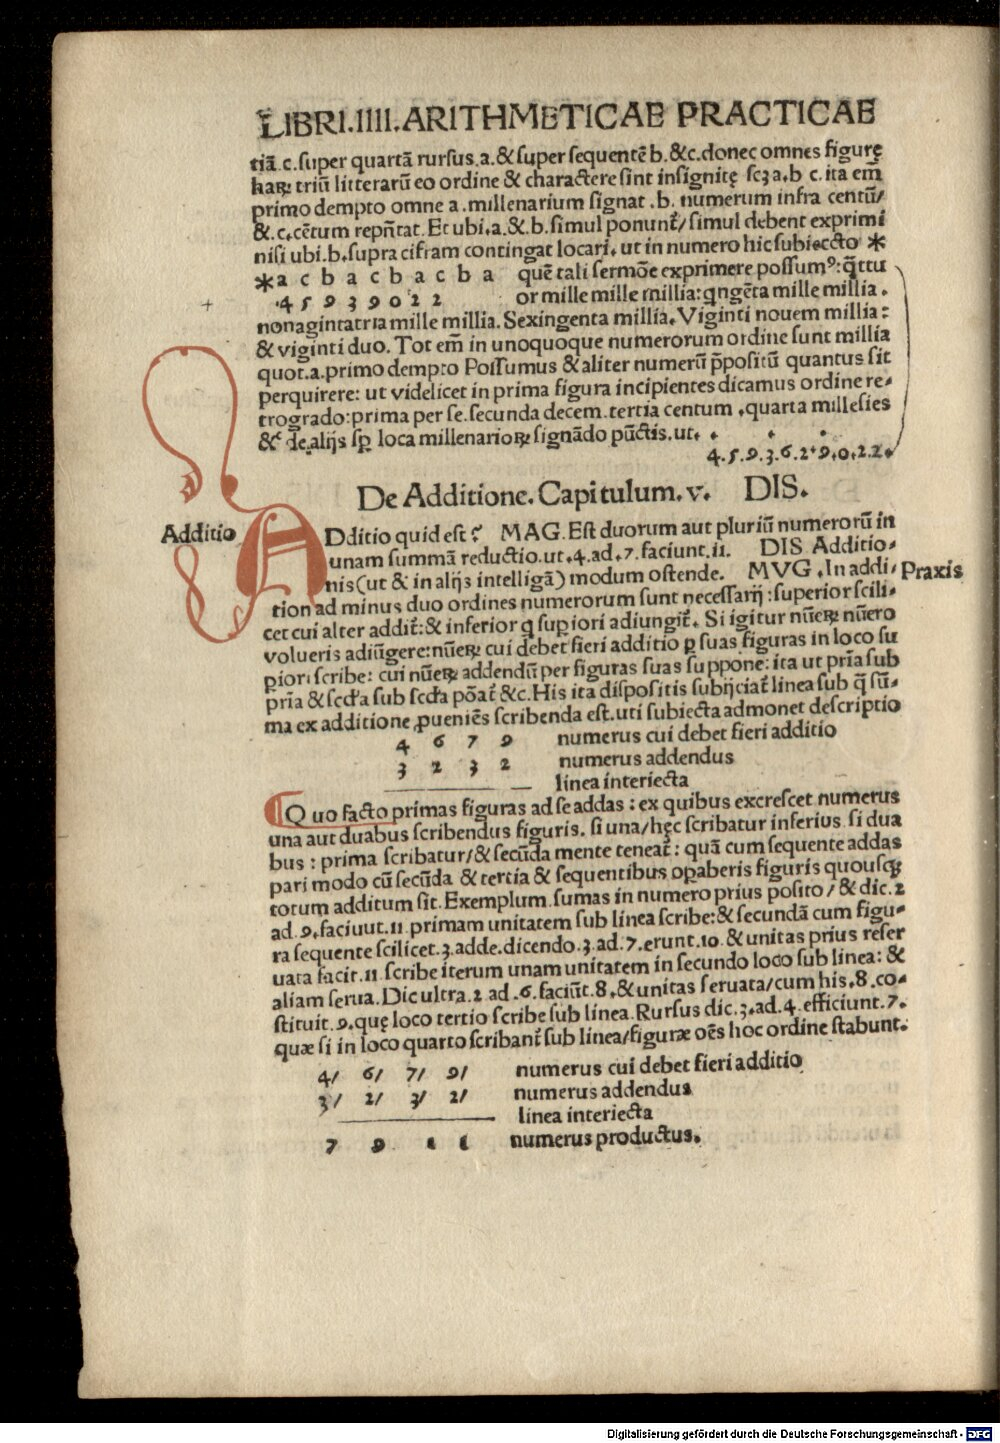 LIBRI.IIII.ARITHMETICAE PRACTICAE
tiā.c.super quartā rursus.a.&super sequentē b.&c.donec omnes figurę
haꝝ triū litterarū eo ordine & charactere sint insignitę scꝫ a.b c.ita em̄
primo dempto omne a.millenarium signat .b. numerum infra centū/
&.c.cētum repn̄tat. Et ubi.a.&.b.simul ponunt᷑/simul debent exprimi
nisi ubi.b.supra cifram contingat locari.ut in numero hic subiecto *
*a c b a c b a c b a quē tali sermōe exprimere possumꝰ:q̄ttu
.4 5 9 3 9 0 2 2 or mille mille millia:qngēta mille millia.
nonagintatria mille millia.Sexingenta millia.Viginti nouem millia:
& viginti duo.Tot em̄ in unoquoque numerorum ordine sunt millia
quot.a.primo dempto Possumus &aliter numerū p̄positū quantus sit
perquirere: ut videlicet in prima figura incipientes dicamus ordine re/
trogrado:prima per se.secunda decem.tertia centum .quarta millesies
&c̄ de.alijs sꝑ loca millenarioꝝ signādo pūctis.ut. . . .
4.5.9.3.6.2.9.0.2.2.
De Additione.Capitulum.v. DIS.
Additio
ADditio quid est? MAG.Est duorum aut pluriū numerorū in
unam summā reductio.ut.4.ad.7.faciunt.11. DIS Additio/
nis(ut & in alijs intelligā) modum ostende. MVG .In addi/
Praxis
tion ad minus duo ordines numerorum sunt necessarij:superior scili/
cet cui alter addit᷑:& inferior q suꝑiori adiungit᷑. Si igitur nūeꝝ nūero
volueris adiūgere:nūeꝝ cui debet fieri additio ꝑ suas figuras in loco su
ꝑiori scribe: cui nūeꝝ addendū per figuras suas suppone:ita ut pria sub
pria & scda sub scda pōat᷑ &c.His ita dispositis subijciat᷑ linea sub q̄ sū/
ma ex additione ꝓueniēs scribenda est.uti subiecta admonet descriptio
4 6 7 9 numerus cui debet fieri additio
3 2 3 2 numerus addendus
linea interiecta
Quo facto primas figuras ad se addas : ex quibus excrescet numerus
una aut duabus scribendus figuris. si una/hęc scribatur inferius si dua
bus : prima scribatur/&secūda mente teneat᷑: quā cum sequente addas
pari modo cū secūda & tertia & sequentibus oꝑaberis figuris quousqꝫ
totum additum sit.Exemplum sumas in numero prius posito/& dic.2
ad 9.faciuut.11 primam unitatem sub linea scribe:& secundā cum figu/
ra sequente scilicet.3.adde.dicendo.3.ad.7.erunt.10 & unitas prius reser
uata facit.11 scribe iterum unam unitatem in secundo loco sub linea: &
aliam serua.Dic ultra.2 ad .6.faciūt.8.&unitas seruata/cum his.8.co/
stituit.9.quę loco tertio scribe sub linea.Rursus dic.3.ad.4.efficiunt.7.
quæ si in loco quarto scribant᷑ sub linea/figuræ oēs hoc ordine stabunt.
4/ 6/ 7/ 9/ numerus cui debet fieri additio
3/ 2/ 3/ 2/ numerus addendus
linea interiecta
7 9 1 1 numerus productus.
Digitalisierung gefördert durch die Deutsche Forschungsgemeinschaft - DFG